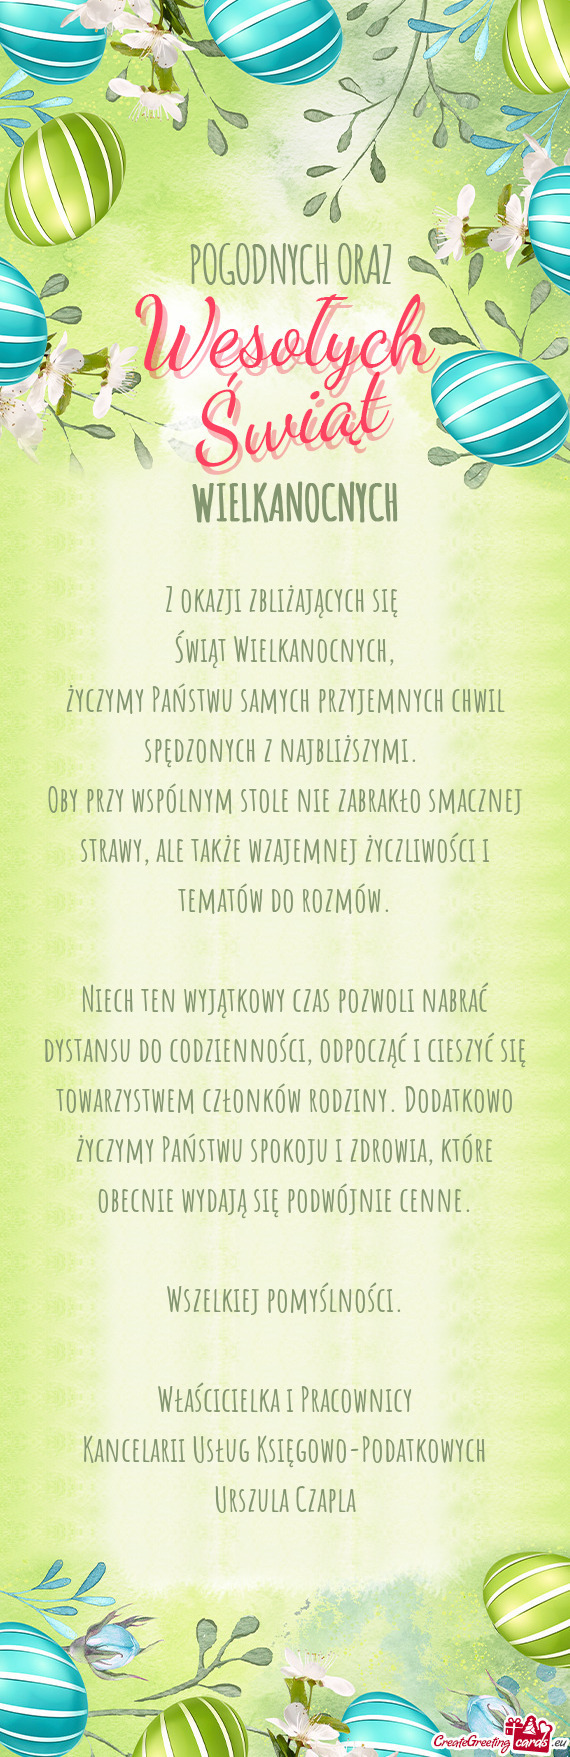 POGODNYCH ORAZ
Wesołych
Świąt
WIELKANOCNYCH
Z OKAZJI ZBLIŻAJĄCYCH SIĘ
ŚWIĄT WIELKANOCNYCH,
ŻYCZYMY PAŃSTWU SAMYCH PRZYJEMNYCH CHWIL
SPĘDZONYCH Z NAJBLIŻSZYMI.
OBY PRZY WSPÓLNYM STOLE NIE ZABRAKŁO SMACZNEJ
STRAWY, ALE TAKŻE WZAJEMNEJ ŻYCZLIWOŚCI I
TEMATÓW DO ROZMÓW.
NIECH TEN WYJĄTKOWY CZAS POZWOLI NABRAĆ
DYSTANSU DO CODZIENNOŚCI, ODPOCZĄĆ I CIESZYĆ SIĘ
TOWARZYSTWEM CZŁONKÓW RODZINY. DODATKOWO
ŻYCZYMY PAŃSTWU SPOKOJU I ZDROWIA, KTÓRE
OBECNIE WYDAJĄ SIĘ PODWÓJNIE CENNE.
WSZELKIEJ POMYŚLNOŚCI.
WŁAŚCICIELKA I PRACOWNICY
KANCELARII USŁUG KSIĘGOWO-PODATKOWYCH
URSZULA CZAPLA
CreateGreetingcards.eu